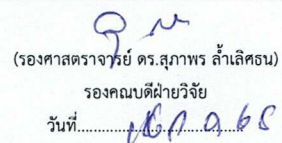 (รองศาสตราจารย์ ดร.สุภาพร ล้ำเลิศธน)
รองคณบดีฝ่ายวิจัย
วันที่